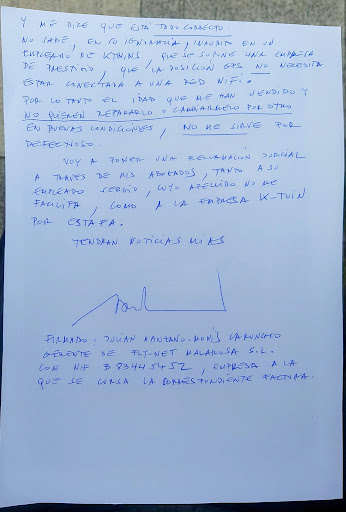 Y ME DIZE QUE ESTÁ TODO CORRECTO.
NO SABE, EN SU IGNORANCIA, INAUDITA EN UN
EMPLEADO DE KTWINS, QUE SE SUPONE UNA EMPRESA
DE PRESTIGIO, QUE LA POSICIÓN GPS NO NECESITA
ESTAR CONECTADA A UNA RED WIFI.
POR LO TANTO EL IPAD QUE ME HAN VENDIDO Y
NO QUIEREN REPARARLO O CAMBIARMELO POR OTRO
EN BUENAS CONDICIONES, NO ME SIRVE POR
DEFECTUOSO.
VOY A PONER UNA RECLAMACIÓN JUDICIAL
A TRAVES DE MIS ABOGADOS, TANTO A SU
EMPLEADO SERGIO, CUYO APELLIDO NO ME
FACILITA, COMO A LA EMPRESA K-TUIN
POR ESTAFA.
TENDRAN NOTICIAS MIAS
FIRMADO: JULIAN MANZANO-MONÍS
GERENTE DE FLT-NET MALAROSA S.L.
CON NIF B83445452, EMPRESA A LA
QUE SE CURSA LA CORRESPONDIENTE FACTURA.